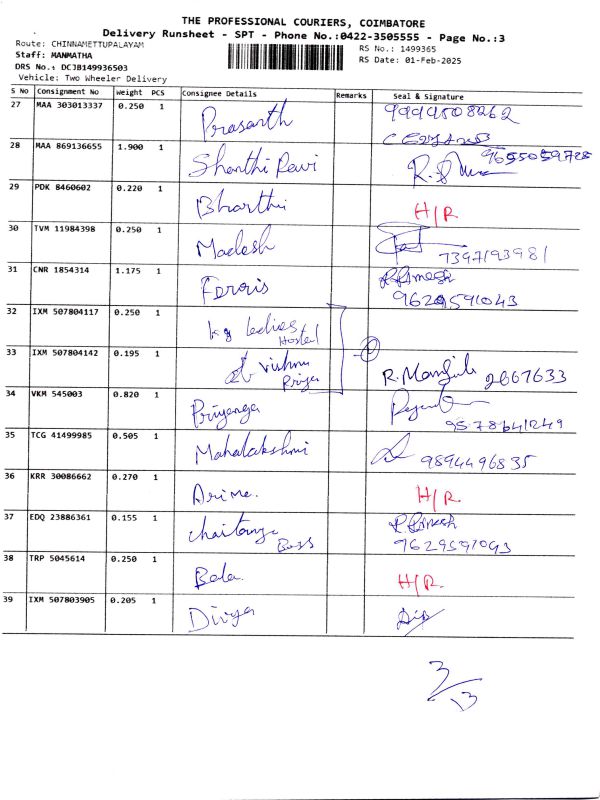 THE PROFESSIONAL COURIERS, COIMBATORE
Delivery Runsheet - SPT - Phone No.:0422-3505555 - Page No.:3
Route: CHINNAMETTUPALAYAM
RS No.: 1499365
Staff: MANMATHA
RS Date: 01-Feb-2025
DRS No.: DCJB149936503
Vehicle: Two Wheeler Delivery
S No Consignment No Weight PCS Consignee Details Remarks Seal & Signature
27 MAA 303013337 0.250 1 Prasanth
28 MAA 869136655 1.900 1 Shanthi Devi 9655059728
29 PDK 8460602 0.220 1 Bharthi H/R
30 TVM 11984398 0.250 1 Madesh 7397193981
31 CNR 1854314 1.175 1 Ferois 9629591043
32 IXM 507804117 0.250 1 kg ladies Hostel
33 IXM 507804142 0.195 1 Vishnu Priya 2667633
34 VKM 545003 0.820 1 Priyanga 9578641249
35 TCG 41499985 0.505 1 Mahalakshmi 9894496835
36 KRR 30086662 0.270 1 H/R
37 EDQ 23886361 0.155 1 chaitanya 9629591043
38 TRP 5045614 0.250 1 Bala H/R
39 IXM 507803905 0.205 1 Divya
3/13